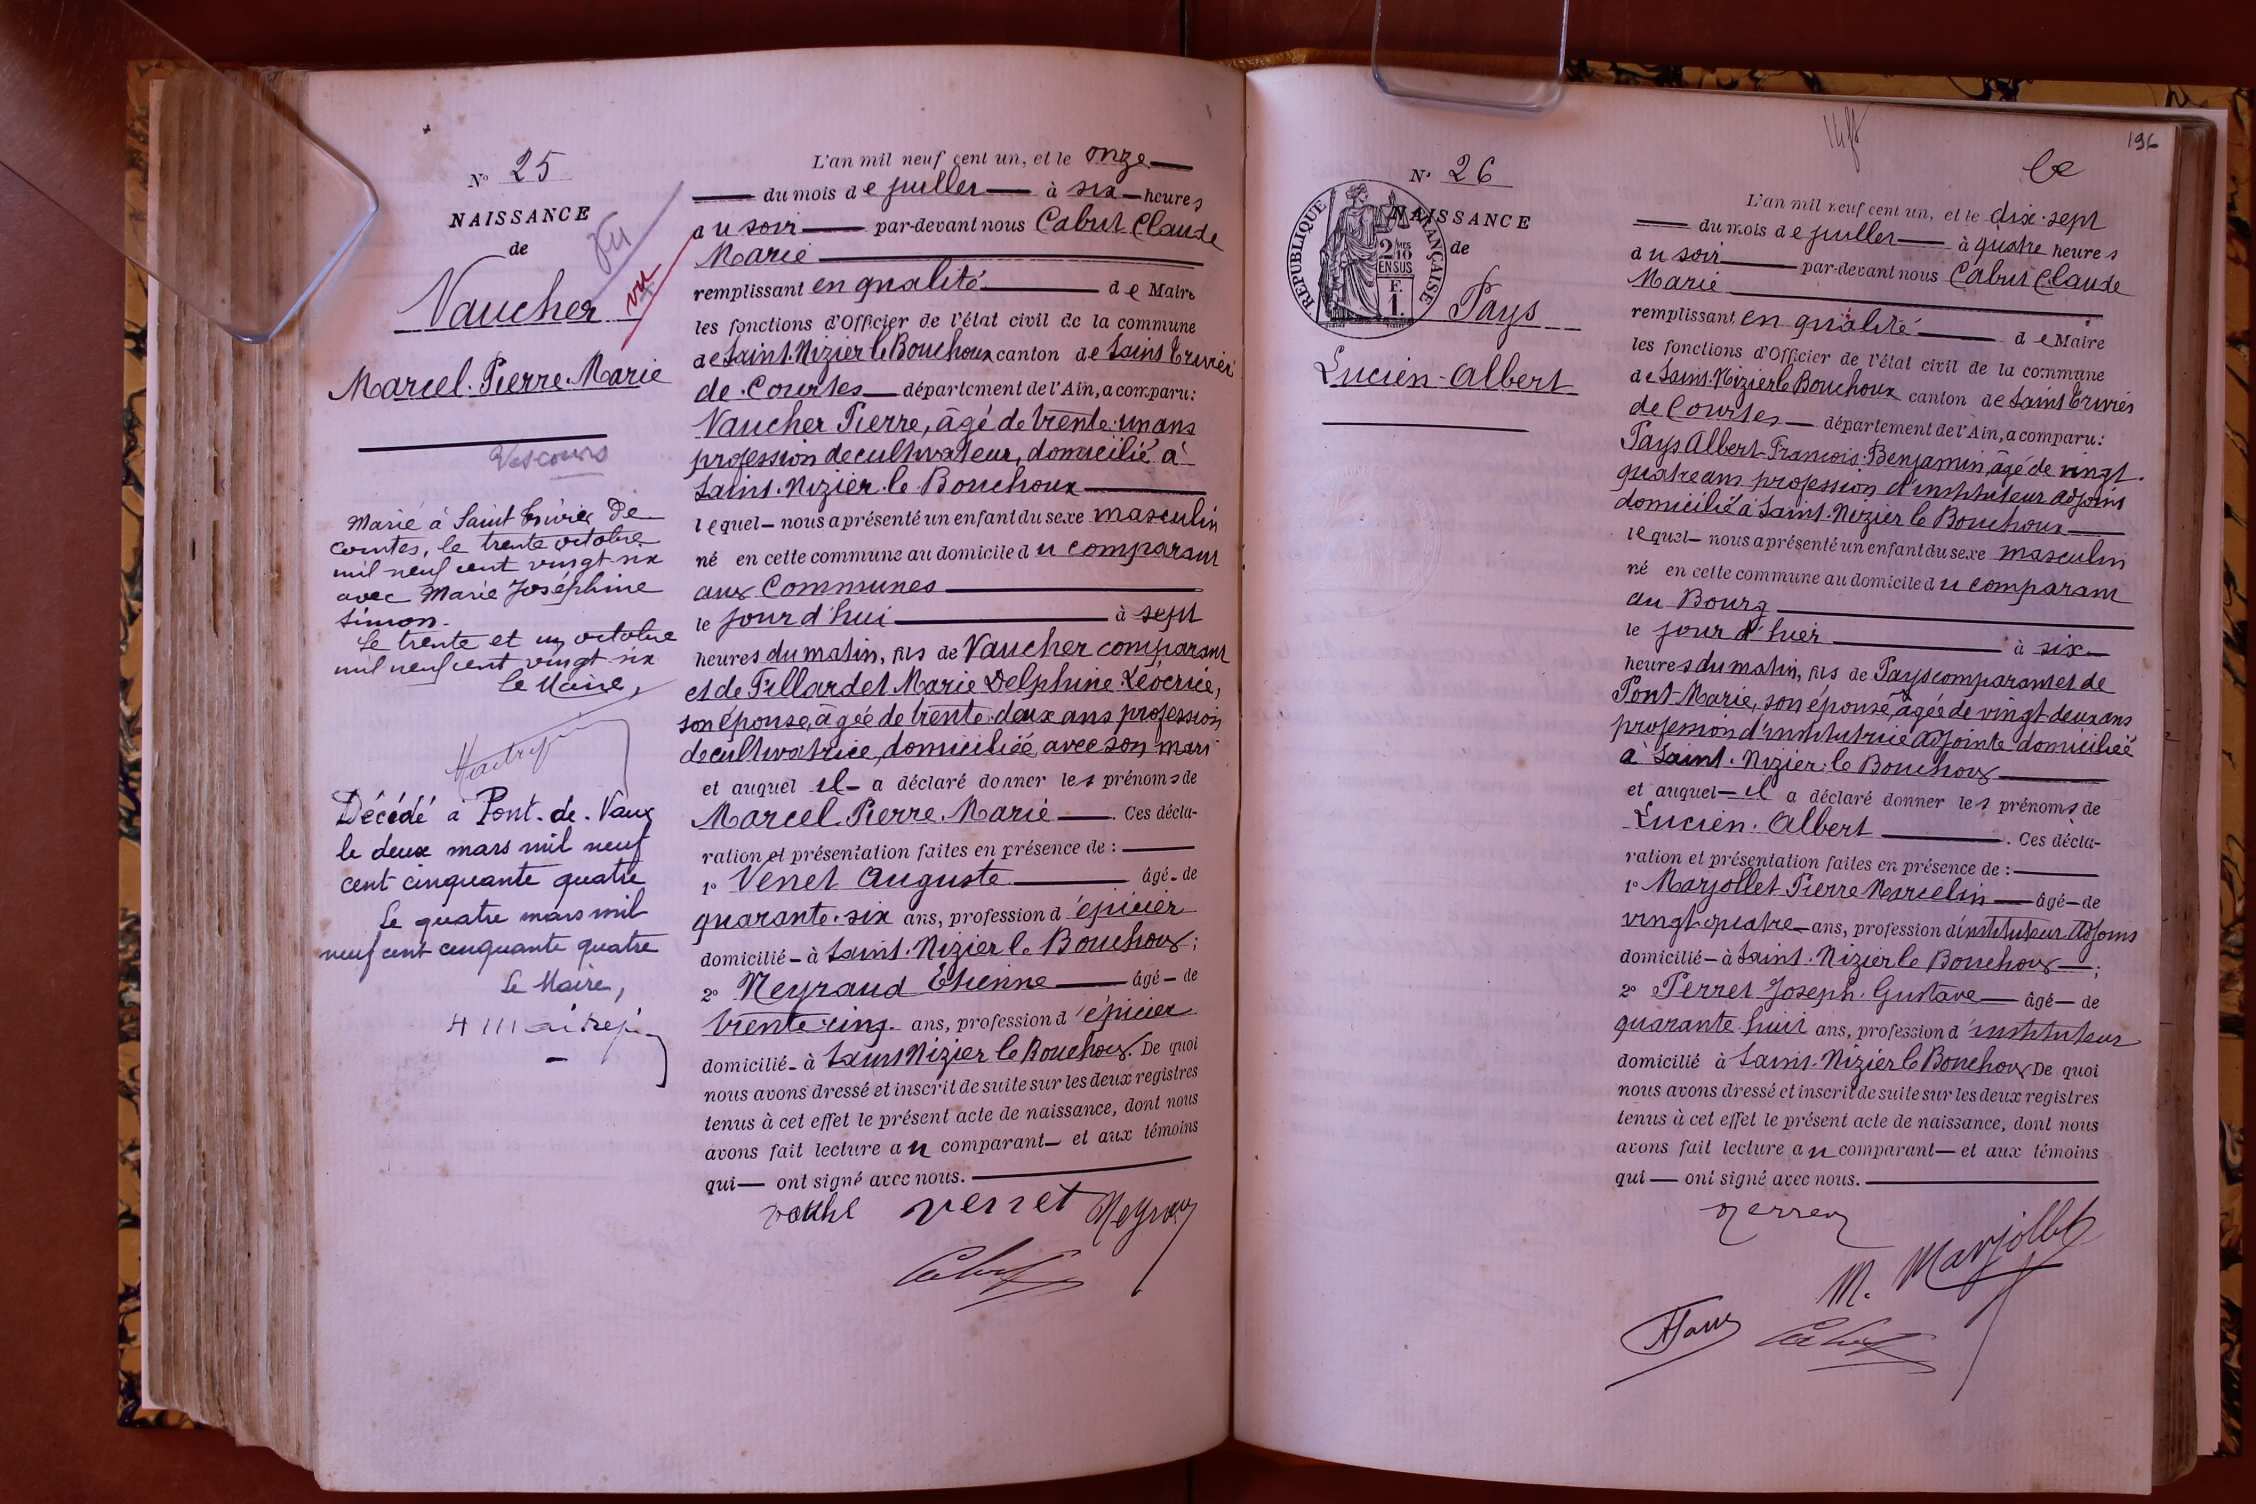 N° 25
NAISSANCE
de
Vaucher
vu
Marcel. Pierre. Marie
Vescours
Marié à Saint Trivier De
Courtes, le trente octobre
mil neuf cent vingt six
avec Marie Joséphine
Simon.
Le trente et un octobre
mil neuf cent vingt six
Le Maire,
Décédé à Pont. de. Vaux
le deux mars mil neuf
cent cinquante quatre
Le quatre mars mil
neuf cent cinquante quatre
Le Maire,
L'an mil neuf cent un, et le onze
du mois de juillet à six heures
au soir par-devant nous Cabut Claude
Marie
remplissant en qualité de Maire
les fonctions d'Officier de l'état civil de la commune
de Saint. Nizier le Bouchoux canton de Saint Trivier
de. Courtes département de l'Ain, a comparu:
Vaucher Pierre, âgé de trente un ans
profession de cultivateur, domicilié à
Saint. Nizier. le Bouchoux
lequel nous a présenté un enfant du sexe masculin
né en cette commune au domicile du comparant
aux Communes
le jour d'hui à sept
heures du matin, fils de Vaucher comparant
et de Tillardet Marie Delphine Léocrice,
son épouse, âgée de trente deux ans profession
de cultivatrice, domiciliée avec son mari
et auquel il a déclaré donner les prénoms de
Marcel. Pierre. Marie. Ces décla-
ration et présentation faites en présence de :
1° Venet Auguste âgé de
quarante. six ans, profession d'épicier
domicilié à Saint. Nizier le Bouchoux;
2° Neyraud Etienne âgé de
trente cinq ans, profession d'épicier
domicilié à Saint Nizier le Bouchoux. De quoi
nous avons dressé et inscrit de suite sur les deux registres
tenus à cet effet le présent acte de naissance, dont nous
avons fait lecture au comparant et aux témoins
qui ont signé avec nous.
venet Neyraud
Cabut
196
N° 26
NAISSANCE
de
RÉPUBLIQUE FRANÇAISE
2/10 MES
EN SUS
F.
1.
Pays
Lucien-Albert
Le
L'an mil neuf cent un, et le dix. sept
du mois de juillet à quatre heures
au soir par-devant nous Cabut Claude
Marie
remplissant en qualité de Maire
les fonctions d'Officier de l'état civil de la commune
de Saint. Nizier le Bouchoux canton de Saint Trivier
de Courtes département de l'Ain, a comparu:
Pays Albert-François. Benjamin, âgé de vingt.
quatre ans profession d'instituteur adjoint
domicilié à Saint. Nizier le Bouchoux
lequel nous a présenté un enfant du sexe masculin
né en cette commune au domicile du comparant
au Bourg
le jour d'hier à six
heures du matin, fils de Pays comparant et de
Pont-Marie, son épouse, âgée de vingt deux ans
profession d'institutrice adjointe domiciliée
à Saint. Nizier. le Bouchoux
et auquel il a déclaré donner les prénoms de
Lucien. Albert. Ces décla-
ration et présentation faites en présence de :
1° Marjollet Pierre Marcelin âgé de
vingt-quatre ans, profession d'instituteur adjoint
domicilié à Saint. Nizier le Bouchoux;
2° Perret Joseph. Gustave âgé de
quarante huit ans, profession d'instituteur
domicilié à Saint. Nizier le Bouchoux De quoi
nous avons dressé et inscrit de suite sur les deux registres
tenus à cet effet le présent acte de naissance, dont nous
avons fait lecture au comparant et aux témoins
qui ont signé avec nous.
Perret
M. Marjollet
APays Cabut